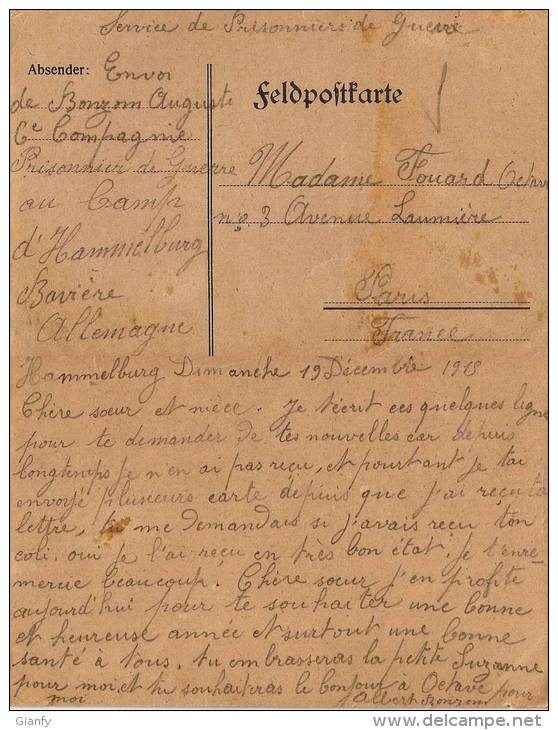 Service de Prisonniers de Guerre
Absender: Envoi
de Bonzom Auguste
6e Compagnie
Prisonnier de Guerre
au Camp
d'Hammelburg
Bavière
Allemagne
Feldpostkarte
Madame Fouard Octave
n° 3 Avenue Laumière
Paris
France
Hammelburg Dimanche 19 Décembre 1915
Chère sœur et nièce. Je t'écrit ces quelques ligne
pour te demander de tes nouvelles car depuis
longtemps je n'en ai pas reçu, et pourtant je t'ai
envoyé plusieurs carte depuis que j'ai reçu ta
lettre, tu me demandais si j'avais reçu ton
coli, oui je l'ai reçu en très bon état, je t'en re-
mercie beaucoup. Chère sœur j'en profite
aujourd'hui pour te souhaiter une bonne
et heureuse année et surtout une bonne
santé à tous, tu embrasseras la petite Suzanne
pour moi, et tu souhaiteras le bonjour à Octave pour
moi
Albert Bonzom
Gianfy
delcampe.net